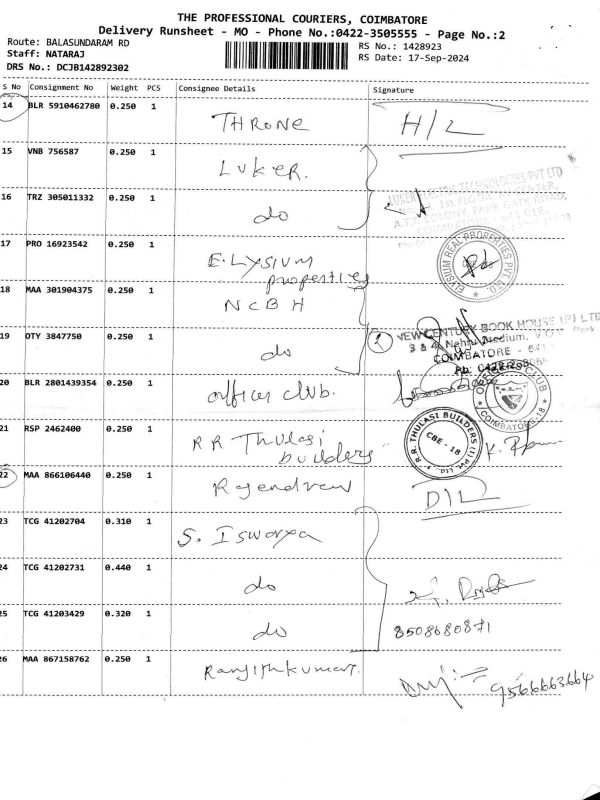 THE PROFESSIONAL COURIERS, COIMBATORE
Delivery Runsheet - MO - Phone No.:0422-3505555 - Page No.:2
Route: BALASUNDARAM RD
RS No.: 1428923
Staff: NATARAJ
RS Date: 17-Sep-2024
DRS No.: DCJB142892302
S No Consignment No Weight PCS Consignee Details Signature
14 BLR 5910462780 0.250 1 THRONE H/L
15 VNB 756587 0.250 1 LUKER.
16 TRZ 305011332 0.250 1 do
LUKER ELECTRIC TECHNOLOGIES PVT LTD
17 PRO 16923542 0.250 1 ELYSIUM properties
ELYSIUM REAL PROPERTIES PVT LTD.
18 MAA 301904375 0.250 1 NCBH
19 OTY 3847750 0.250 1 do
2
NEW CENTURY BOOK HOUSE (P) LTD
COIMBATORE
20 BLR 2801439354 0.250 1 officer club.
OFFICERS CLUB
COIMBATORE-18
21 RSP 2462400 0.250 1 RR Thulasi builders
R.R. THULASI BUILDERS (I) Pvt. Ltd.
CBE - 18
22 MAA 866106440 0.250 1 Rajendran D/L
23 TCG 41202704 0.310 1 S. Isworya
24 TCG 41202731 0.440 1 do
25 TCG 41203429 0.320 1 do
8508680871
26 MAA 867158762 0.250 1 Ranjithkumar.
9566663664